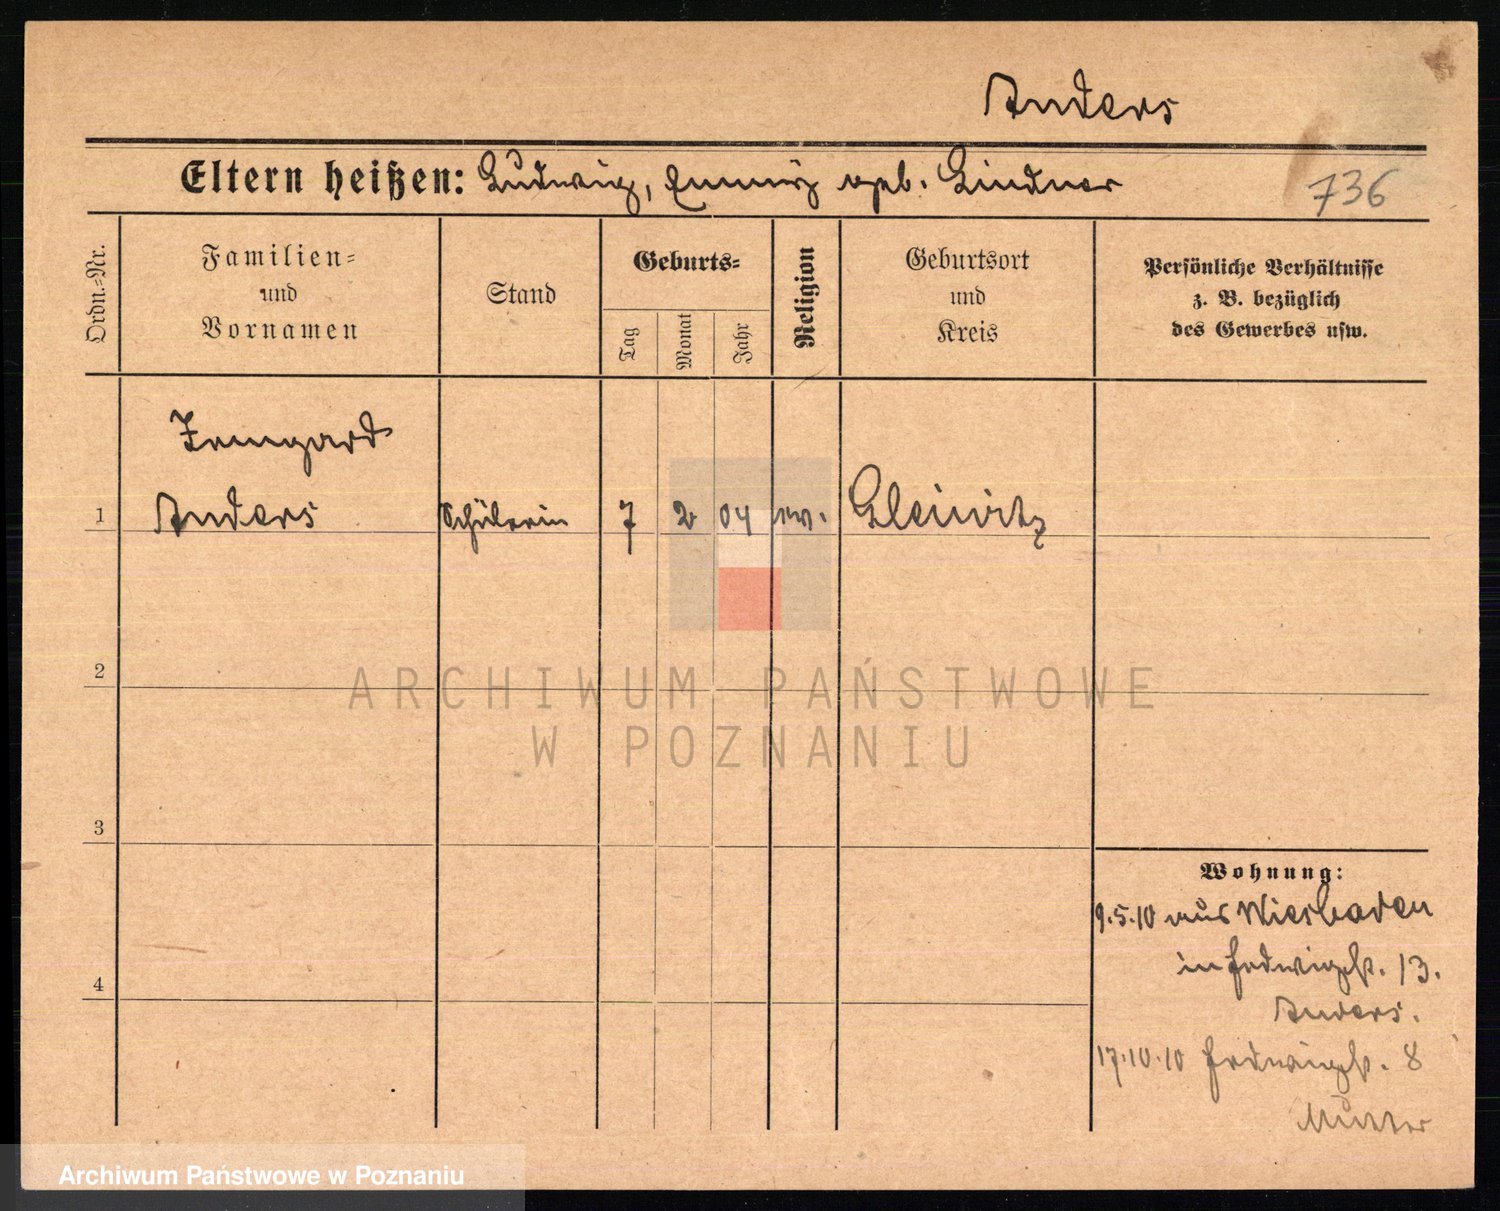 Anders
Eltern heißen: Ludwig, geb. Lindner
736
Ordn.-Nr.
Familien-
und
Vornamen
Stand
Geburts-
Tag
Monat
Jahr
Religion
Geburtsort
und
Kreis
Persönliche Verhältnisse
z. B. bezüglich
des Gewerbes usw.
Irmgard
1 Anders Schülerin 7 2 04 ev. Gleiwitz
2
ARCHIWUM PAŃSTWOWE
W POZNANIU
3
Wohnung:
9.5.10 aus Wiesbaden
in Hedwigst. 13.
Anders.
4
17.10.10 Hedwigst. 8
Mutter
Archiwum Państwowe w Poznaniu